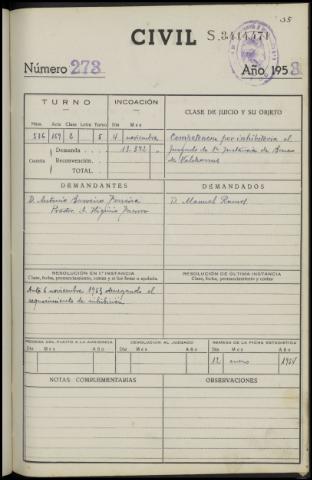 35
CIVIL S. 3444471
Número 273 Año, 1953
TURNO INCOACIÓN CLASE DE JUICIO Y SU OBJETO
Núm. Acto Clase Letra Turno Día Mes
536 169 2 5 4 noviembre Competencia por inhibitoria al
Demanda 19.892 Juzgado de 1ª Instancia de Barco
Cuantía Reconvención de Valdeorras
TOTAL
DEMANDANTES DEMANDADOS
D. Antonio Ferreira D. Manuel Ramos
Procdor A. Higinio
RESOLUCIÓN EN 1.ª INSTANCIA RESOLUCIÓN DE ÚLTIMA INSTANCIA
Clase, fecha, pronunciamiento, costas y si fué firme o apelada. Clase, fecha, pronunciamiento, costas.
Auto 6 noviembre 1953 denegando el
requerimiento de inhibición
REMISIÓN DEL PLEITO A LA AUDIENCIA DEVOLUCIÓN AL JUZGADO REMESA DE LA FICHA ESTADÍSTICA
Día Mes Año Día Mes Año Día Mes Año
12 enero 1954
NOTAS COMPLEMENTARIAS OBSERVACIONES